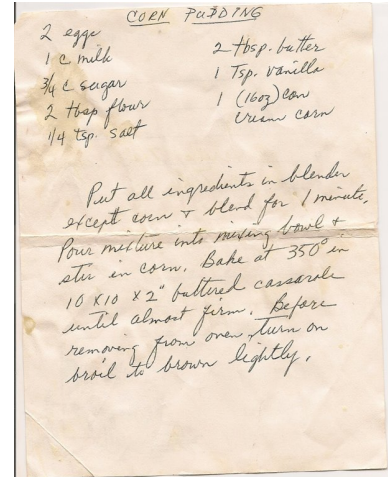 CORN PUDDING
2 eggs
1 c milk
3/4 c sugar
2 tbsp flour
1/4 tsp. salt
2 tbsp. butter
1 Tsp. vanilla
1 (16oz) can
cream corn
Put all ingredients in blender
except corn + blend for 1 minute.
Pour mixture into mixing bowl +
stir in corn. Bake at 350° in
10 x 10 x 2" buttered casserole
until almost firm. Before
removing from oven, turn on
broil to brown lightly.